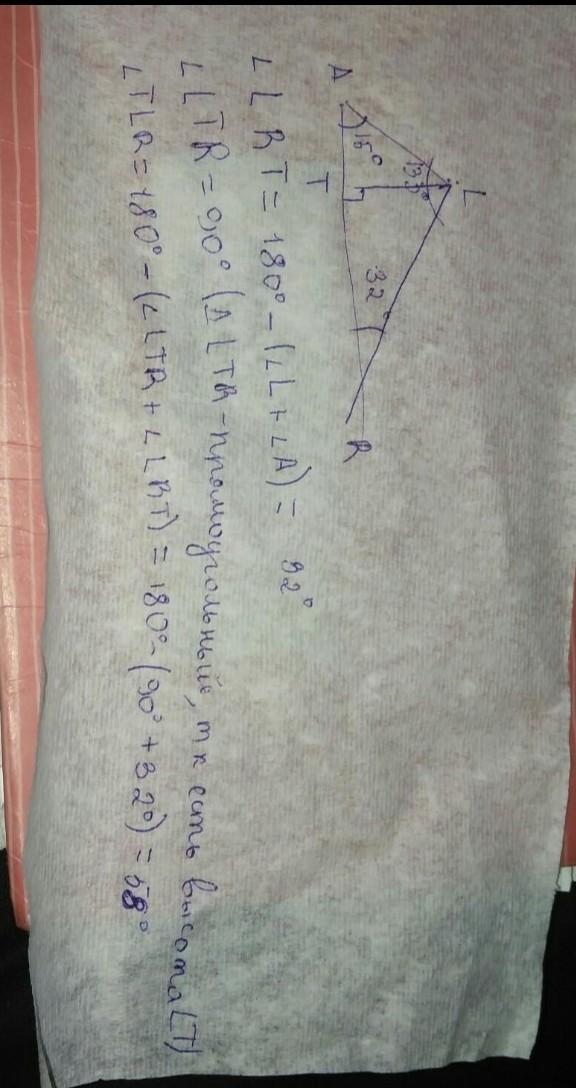 A
L
15°
133°
T
32°
R
∠LRT = 180° - (∠L + ∠A) = 32°
∠LTR = 90° (△LTR - прямоугольный, т к есть высота LT)
∠TLR = 180° - (∠LTR + ∠LRT) = 180° - (90° + 32°) = 58°